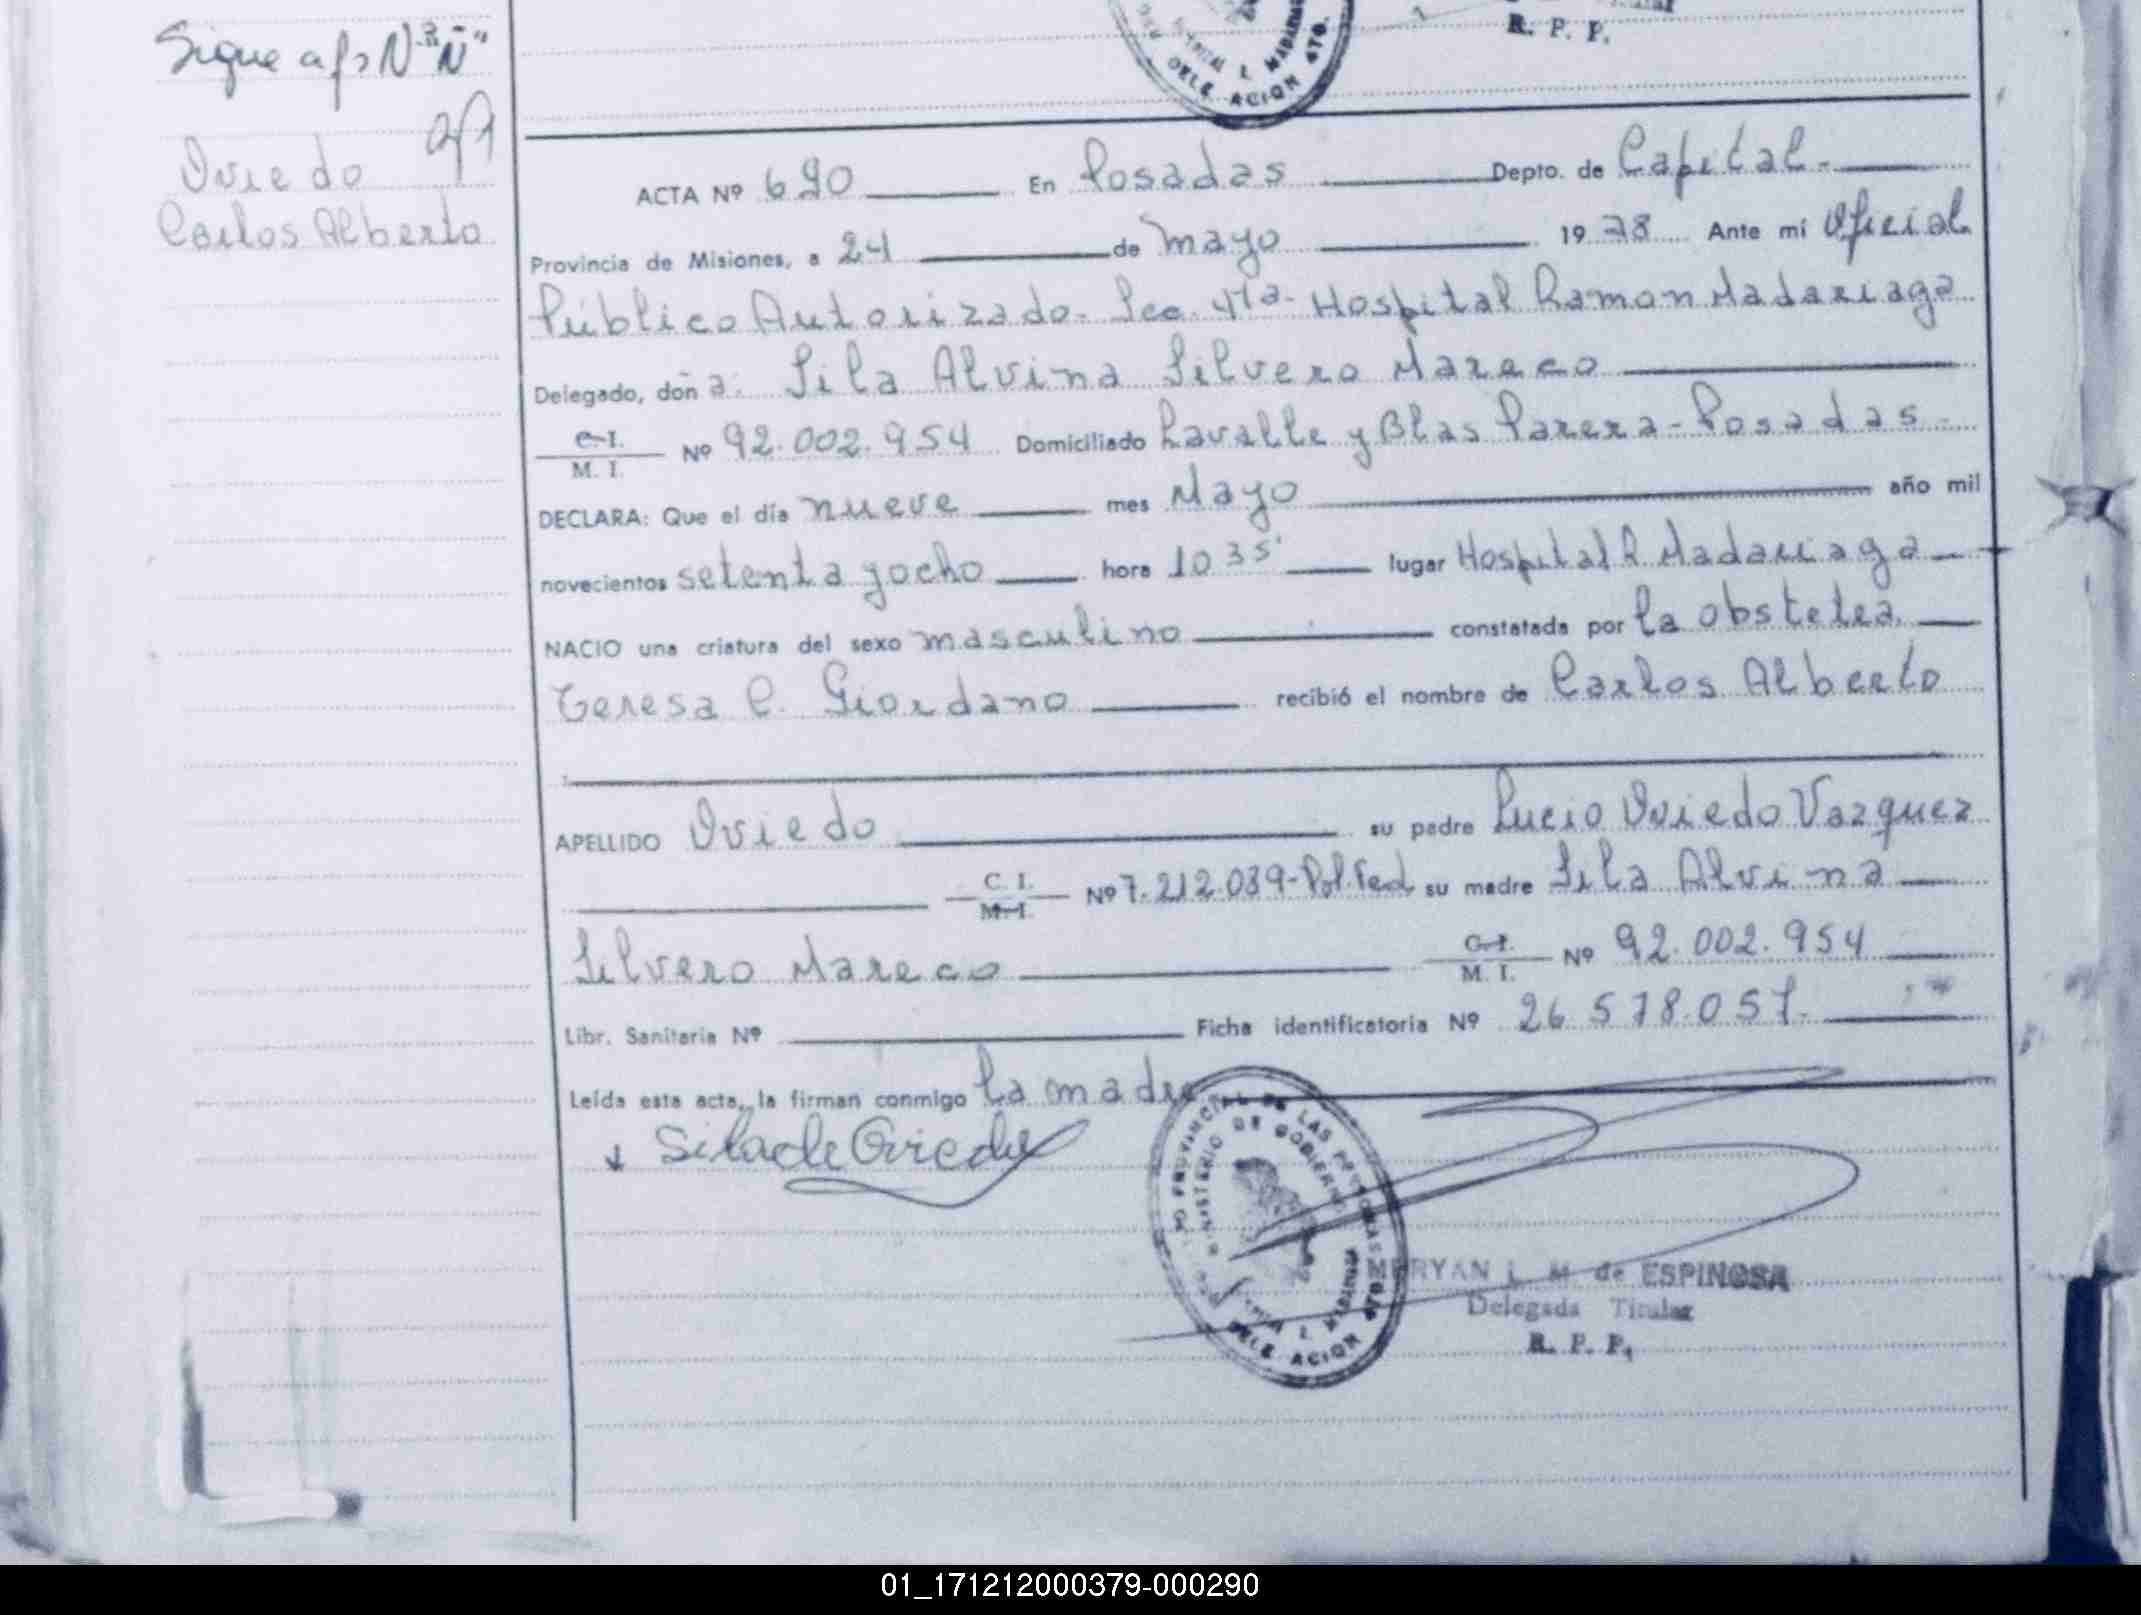 Sigue a fs Nº "Ñ"
Oviedo
Carlos Alberto
R. P. P.
DELE ACION 4TO.
ACTA Nº 690 En Posadas Depto. de Capital.-
Provincia de Misiones, a 24 de mayo 1978 Ante mí Oficial
Público Autorizado. Sec. 4ta. Hospital Ramon Madariaga
Delegado, doña: Sila Alvina Silvero Mareco
C. I. / M. I. Nº 92.002.954 Domiciliado Lavalle y Blas Parera - Posadas -
DECLARA: Que el día nueve mes Mayo año mil
novecientos setenta y ocho hora 10 35' lugar Hospital R Madariaga
NACIO una criatura del sexo masculino constatada por la obstetra
Teresa C. Giordano recibió el nombre de Carlos Alberto
APELLIDO Oviedo su padre Lucio Oviedo Vazquez
C. I. / M. I. Nº 7.212.039-Pol. Fed su madre Sila Alvina
Silvero Mareco C. I. / M. I. Nº 92.002.954
Libr. Sanitaria Nº Ficha identificatoria Nº 26 578.057.
Leída esta acta, la firman conmigo la madre
Sila de Oviedo
PROVINCIAL DE LAS PERSONAS
MINISTERIO DE GOBIERNO
DELE ACION 4TO.
MERYAN L. M. de ESPINOSA
Delegada Titular
R. P. P.
01_171212000379-000290